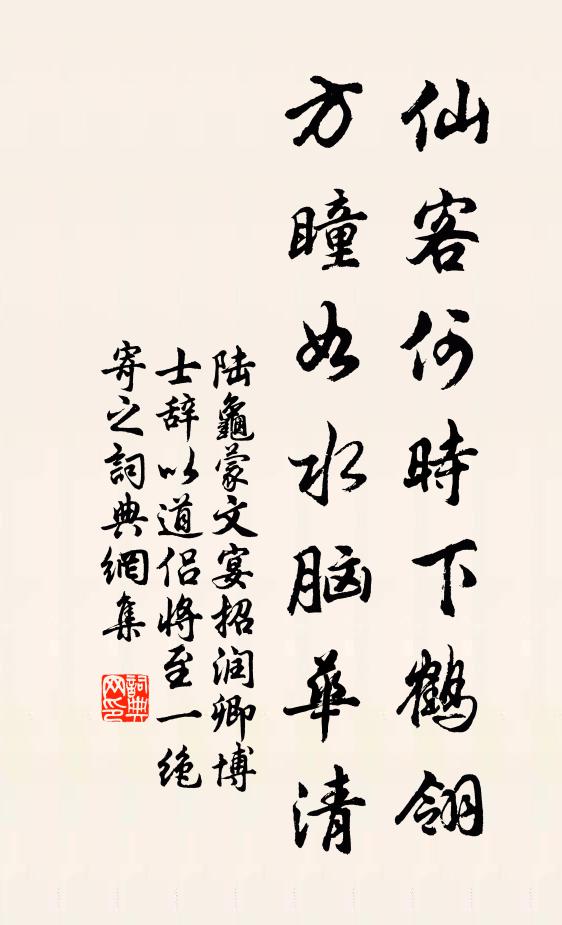 仙客何時下鶴翎
方瞳如水脑華清
陆龜蒙文宴招润卿博
士辞以道侣将至一绝
寄之詞典網集
詞典网印